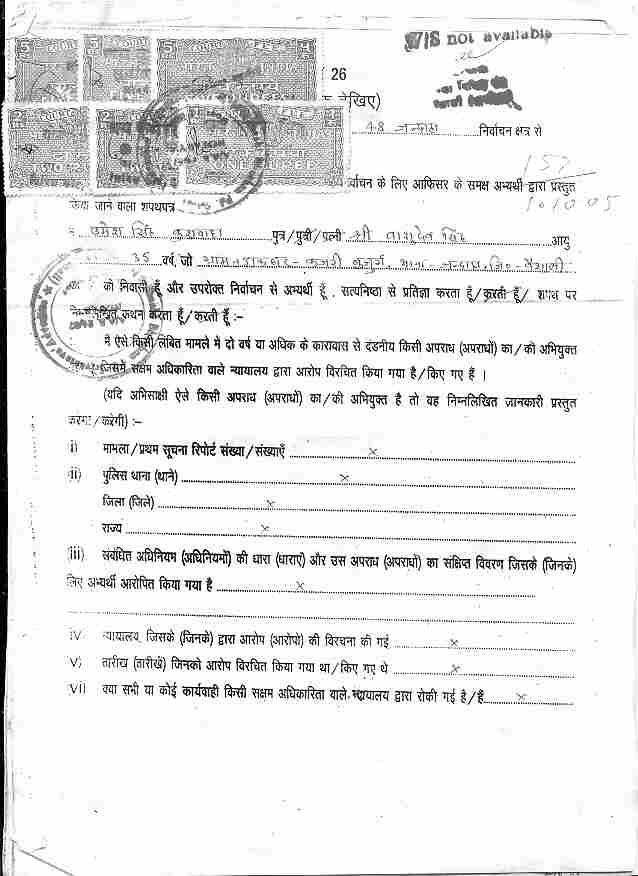 W/S not available
26
देखिए)
48 जन्दाहा निर्वाचन क्षेत्र से
निर्वाचन के लिए आफिसर के समक्ष अभ्यर्थी द्वारा प्रस्तुत
किया जाने वाला शपथपत्र
उमेश सिंह कुशवाहा पुत्र/पुत्री/पत्नी श्री वासुदेव सिंह आयु
35 वर्ष, जो ग्राम+डाकघर- कजरी बुजुर्ग, थाना- जन्दाहा, जि०- वैशाली
का निवासी हूँ और उपरोक्त निर्वाचन से अभ्यर्थी हूँ , सत्यनिष्ठा से प्रतिज्ञा करता हूँ/करती हूँ/ शपथ पर
निम्नलिखित कथन करता हूँ/करती हूँ :-
मैं ऐसे किसी लंबित मामले में दो वर्ष या अधिक के कारावास से दंडनीय किसी अपराध (अपराधों) का/की अभियुक्त
हूँ, जिसमें सक्षम अधिकारिता वाले न्यायालय द्वारा आरोप विरचित किया गया है/किए गए हैं ।
(यदि अभिसाक्षी ऐसे किसी अपराध (अपराधों) का/की अभियुक्त है तो वह निम्नलिखित जानकारी प्रस्तुत
करेगा/करेगी) :-
i) मामला/प्रथम सूचना रिपोर्ट संख्या/संख्याएँ ×
ii) पुलिस थाना (थाने) ×
जिला (जिले) ×
राज्य ×
(iii) संबंधित अधिनियम (अधिनियमों) की धारा (धाराएं) और उस अपराध (अपराधों) का संक्षिप्त विवरण जिसके (जिनके)
लिए अभ्यर्थी आरोपित किया गया है ×
iv) न्यायालय जिसके (जिनके) द्वारा आरोप (आरोपो) की विरचना की गई ×
v) तारीख (तारीखें) जिनको आरोप विरचित किया गया था/किए गए थे ×
vi) क्या सभी या कोई कार्यवाही किसी सक्षम अधिकारिता वाले न्यायालय द्वारा रोकी गई है/हैं ×